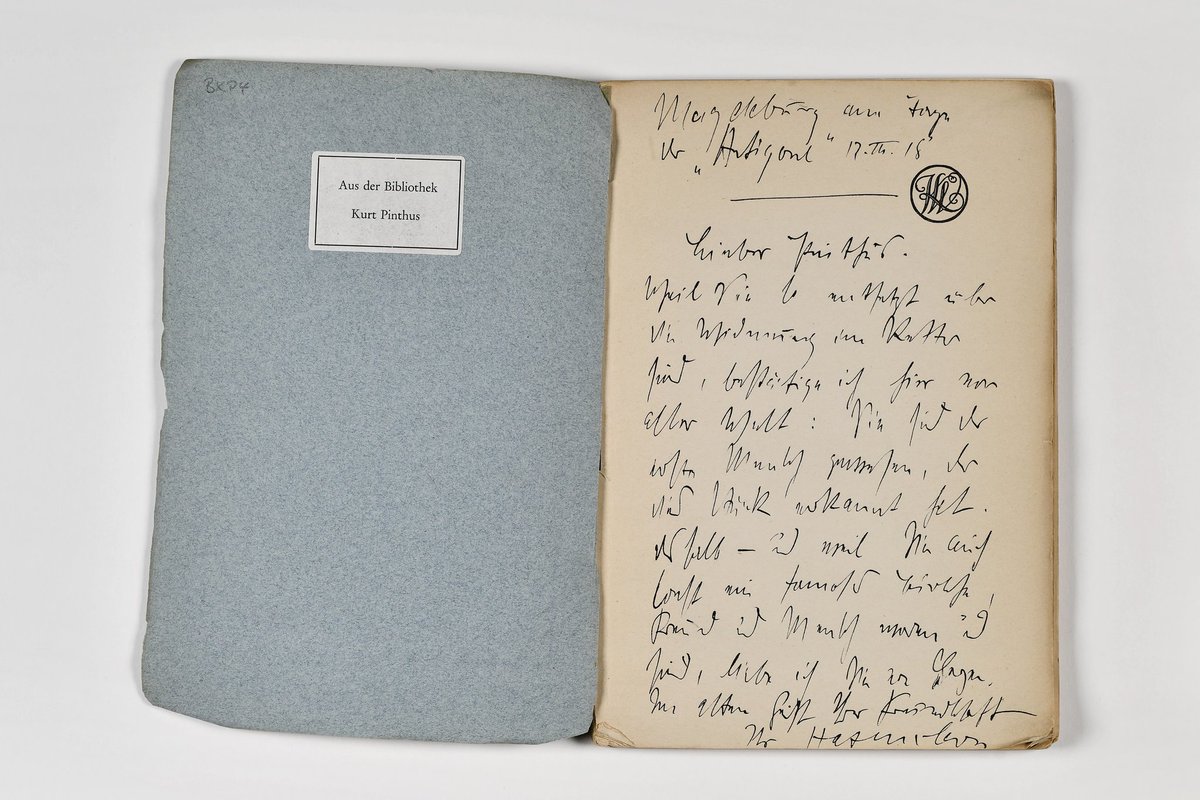 BKP4
Aus der Bibliothek
Kurt Pinthus
Magdeburg am Tage
der „Antigone“ 17. III. 18
Lieber Pinthus.
Weil Sie so entsetzt über
die Widmung im Retter
sind, bestätige ich hier vor
aller Welt: Sie sind der
erste Mensch gewesen, der
dies Stück erkannt hat.
deshalb – und weil Sie auch
sonst ein famoser Bursche,
Freund und Mensch waren und
sind, liebe ich Sie
Im alten Geist Ihrer Freundschaft
Ihr Hasenclever